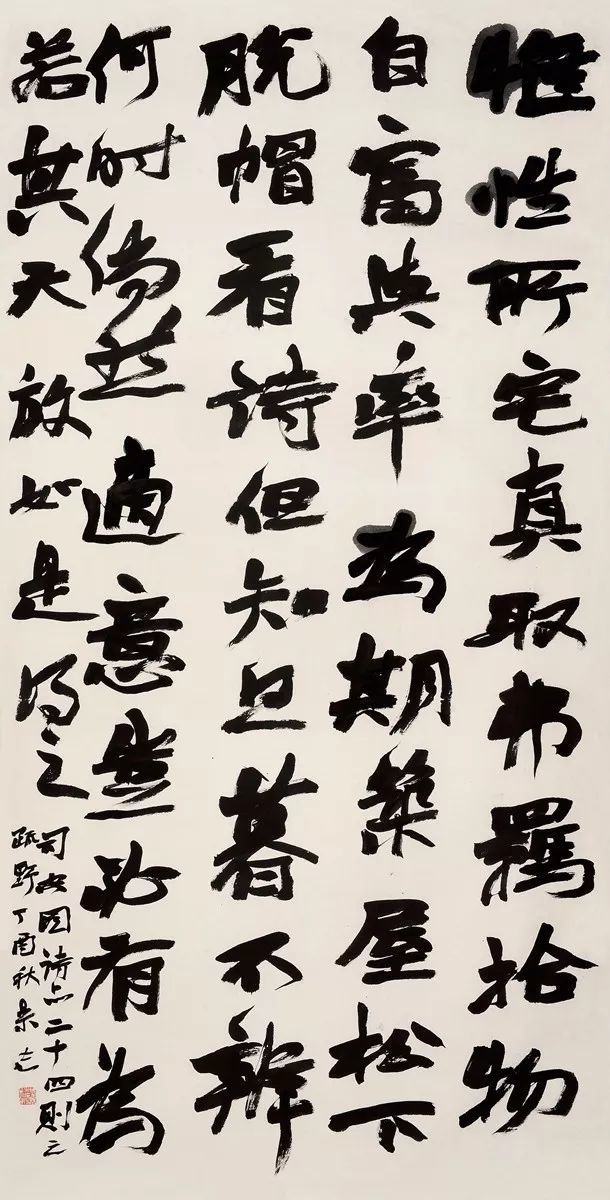 惟性所宅真取弗羈拾物
自富與率為期築屋松下
脫帽看诗但知旦暮不辨
何时倘然適意豈必有為
若其天放如是得之
司空图詩品二十四則之
疏野丁酉秋志